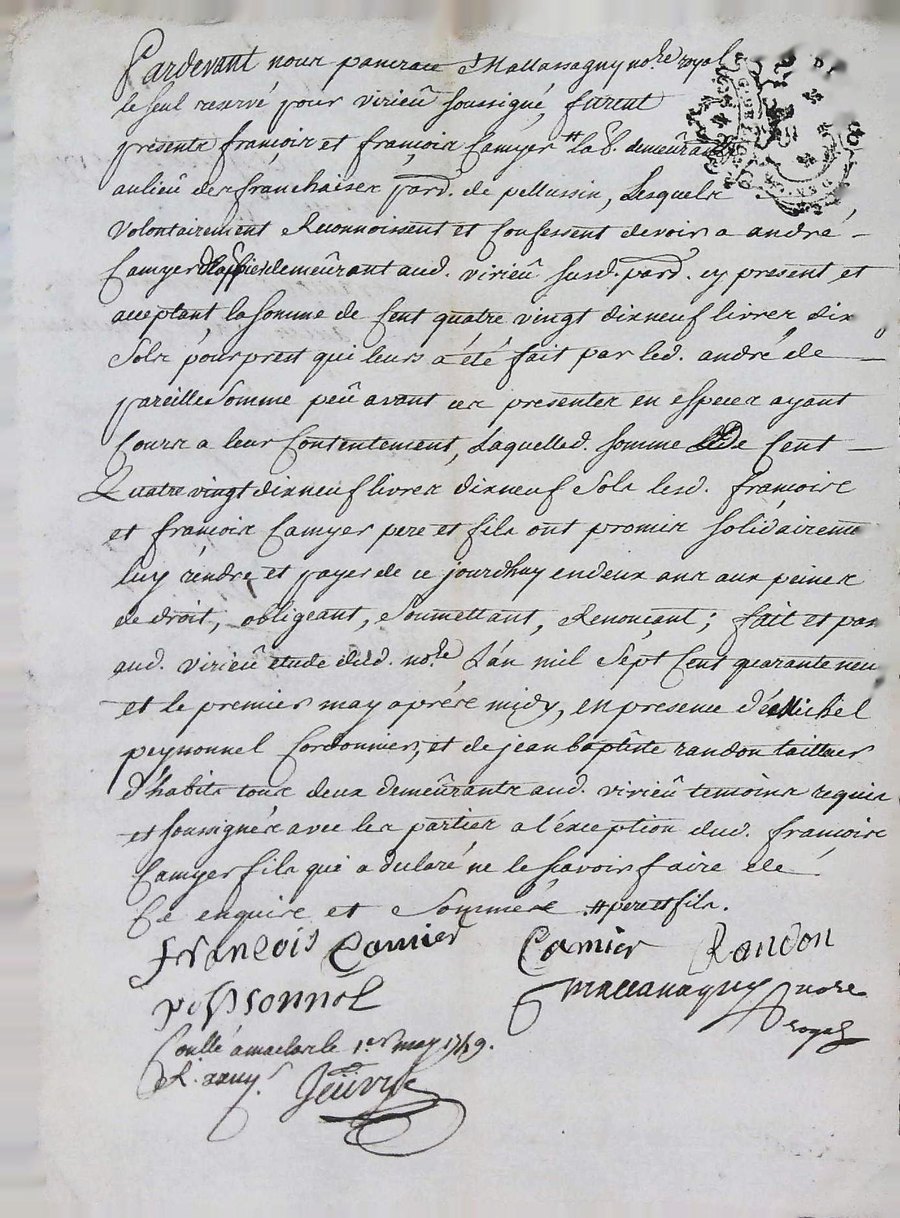 Pardevant nous pancrace Mallassagny no.re royal
le seul reservé pour virieû soussigné, furent
présents françois et françois Camyer # lab. demeûrants
au lieu des franchises parr. de pellussin, Lesquels
volontairement Reconnoissent et Confessent devoir a andré
Camyer demeûrant aud. virieû susd. parr. cy present et
acceptant la somme de Cent quatre vingt dixneuf livres dix
Sols pour prest qui leurs a été fait par led. andré de
pareille Somme peû avant ces presentes en especes ayant
Cours a leur Contentement, Laquelled. somme de Cent
Quatre vingt dixneuf livres dixneuf Sols lesd. françois
et françois Camyer pere et fils ont promis solidaireme
luy rendre et payer de ce jourdhuy en deux ans aux peines
de droit, obligeant, Soumettant, Renonçant; fait et pas
aud. virieû etude dud. no.re L'an mil Sept Cent quarante neu
et le premier may aprés midy, en presence de Michel
peyssonnel Cordonnier, et de jean baptiste randon tailleur
d'habits tous deux demeûrants aud. virieû temoins requis
et soussignés avec les parties a l'éxception dud. françois
Camyer fils qui a declaré ne le sçavoir faire de
Ce enquis et Sommé. # pere et fils.
François Camier Camier Randon
peyssonnel Mallassagny no.re
royal
Conllé a maclas le 1.er may 1749.
R.